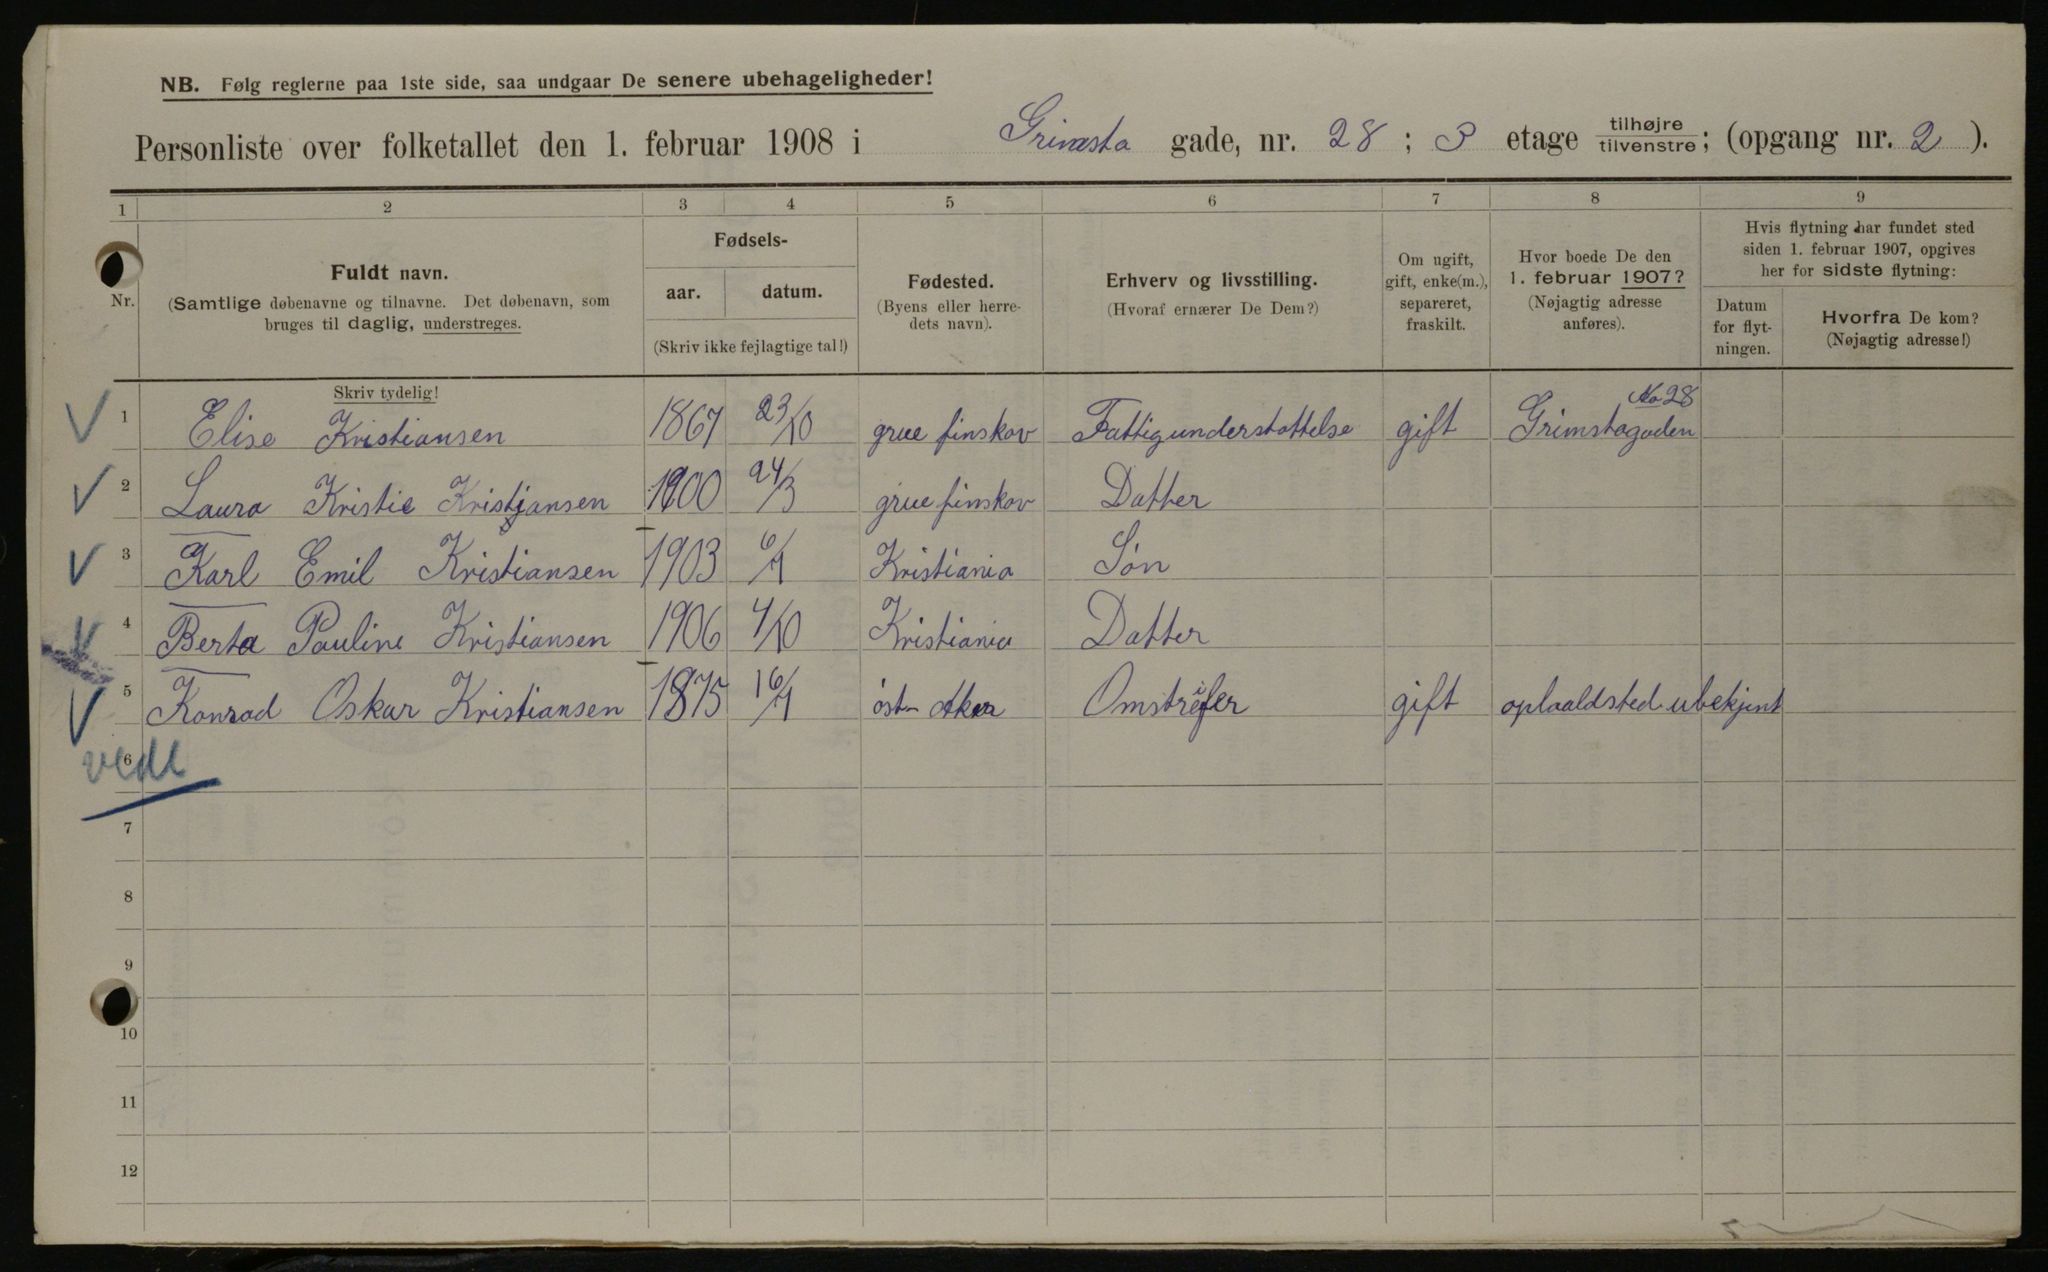 NB. Følg reglerne paa 1ste side, saa undgaar De senere ubehageligheder!
Personliste over folketallet den 1. februar 1908 i Grimsta gade, nr. 28 ; 3 etage tilhøjre tilvenstre; (opgang nr. 2 ).
1 2 3 4 5 6 7 8 9
Nr.
Fuldt navn.
(Samtlige døbenavne og tilnavne. Det døbenavn, som
bruges til daglig, understreges.
Fødsels-
aar. datum.
(Skriv ikke fejlagtige tal!)
Fødested.
(Byens eller herre-
dets navn).
Erhverv og livsstilling.
(Hvoraf ernærer De Dem?)
Om ugift,
gift, enke(m.),
separeret,
fraskilt.
Hvor boede De den
1. februar 1907?
(Nøjagtig adresse
anføres).
Hvis flytning har fundet sted
siden 1. februar 1907, opgives
her for sidste flytning:
Datum
for flyt-
ningen.
Hvorfra De kom?
(Nøjagtig adresse!)
Skriv tydelig!
1 Elise Kristiansen 1867 23/10 grue finskov Fattigunderstøttelse gift Grimstagaden No 28
2 Laura Kristie Kristjansen 1900 24/3 grue finskov Datter
3 Karl Emil Kristiansen 1903 6/1 Kristiania Søn
4 Berta Pauline Kristiansen 1906 4/10 Kristiania Datter
5 Konrad Oskar Kristiansen 1875 16/1 östr Aker Omstreifer gift oplaaldsted ubekjent
6
7
8
9
10
11
12